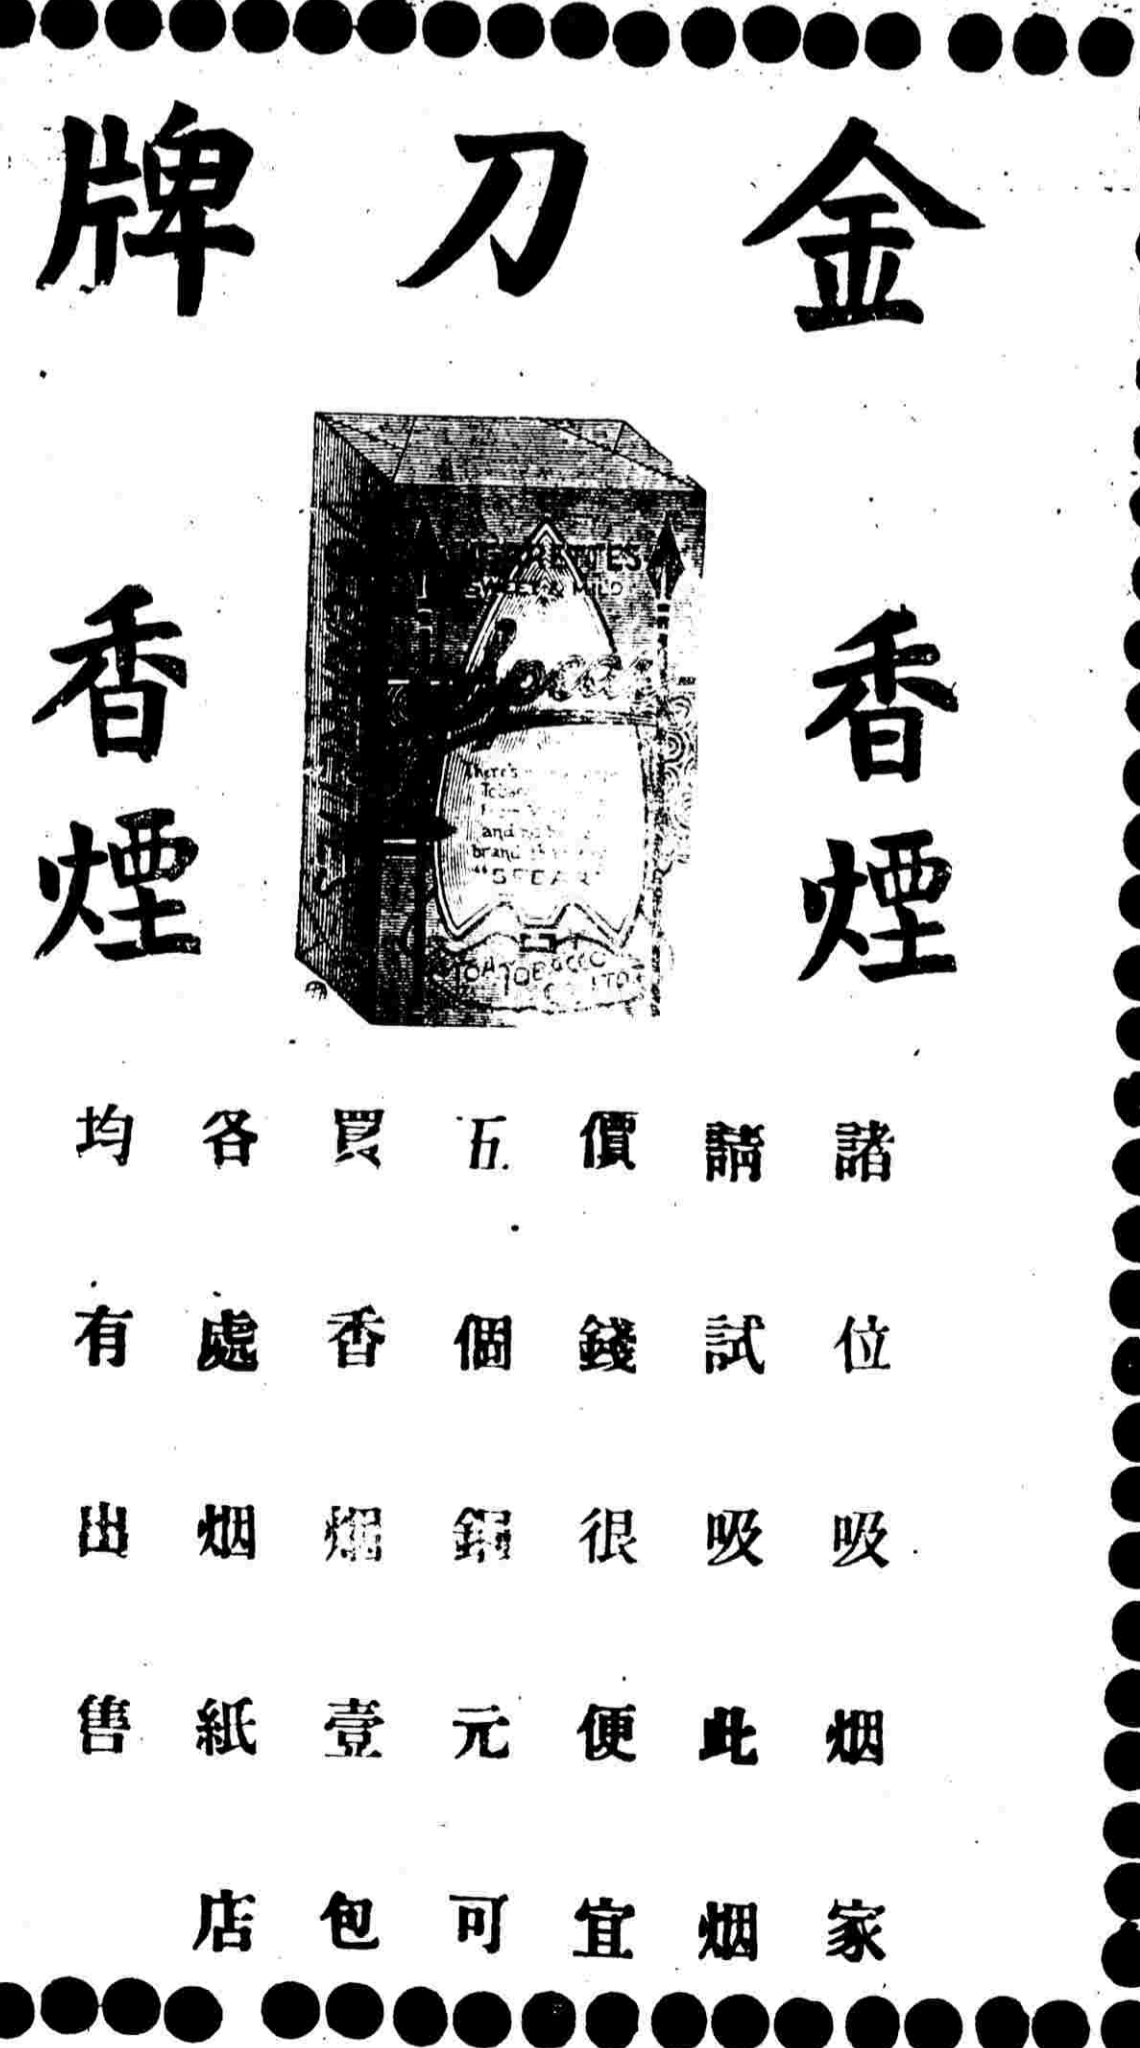 金刀牌
香煙
香煙
CIGARETTES
SWEET & MILD
There's
and
brand
"SPEAR"
TOA TOBACCO
CO LTD
諸位吸烟家
請試吸此烟
價錢很便宜
五個銅元可
買香烟壹包
各處烟紙店
均有出售